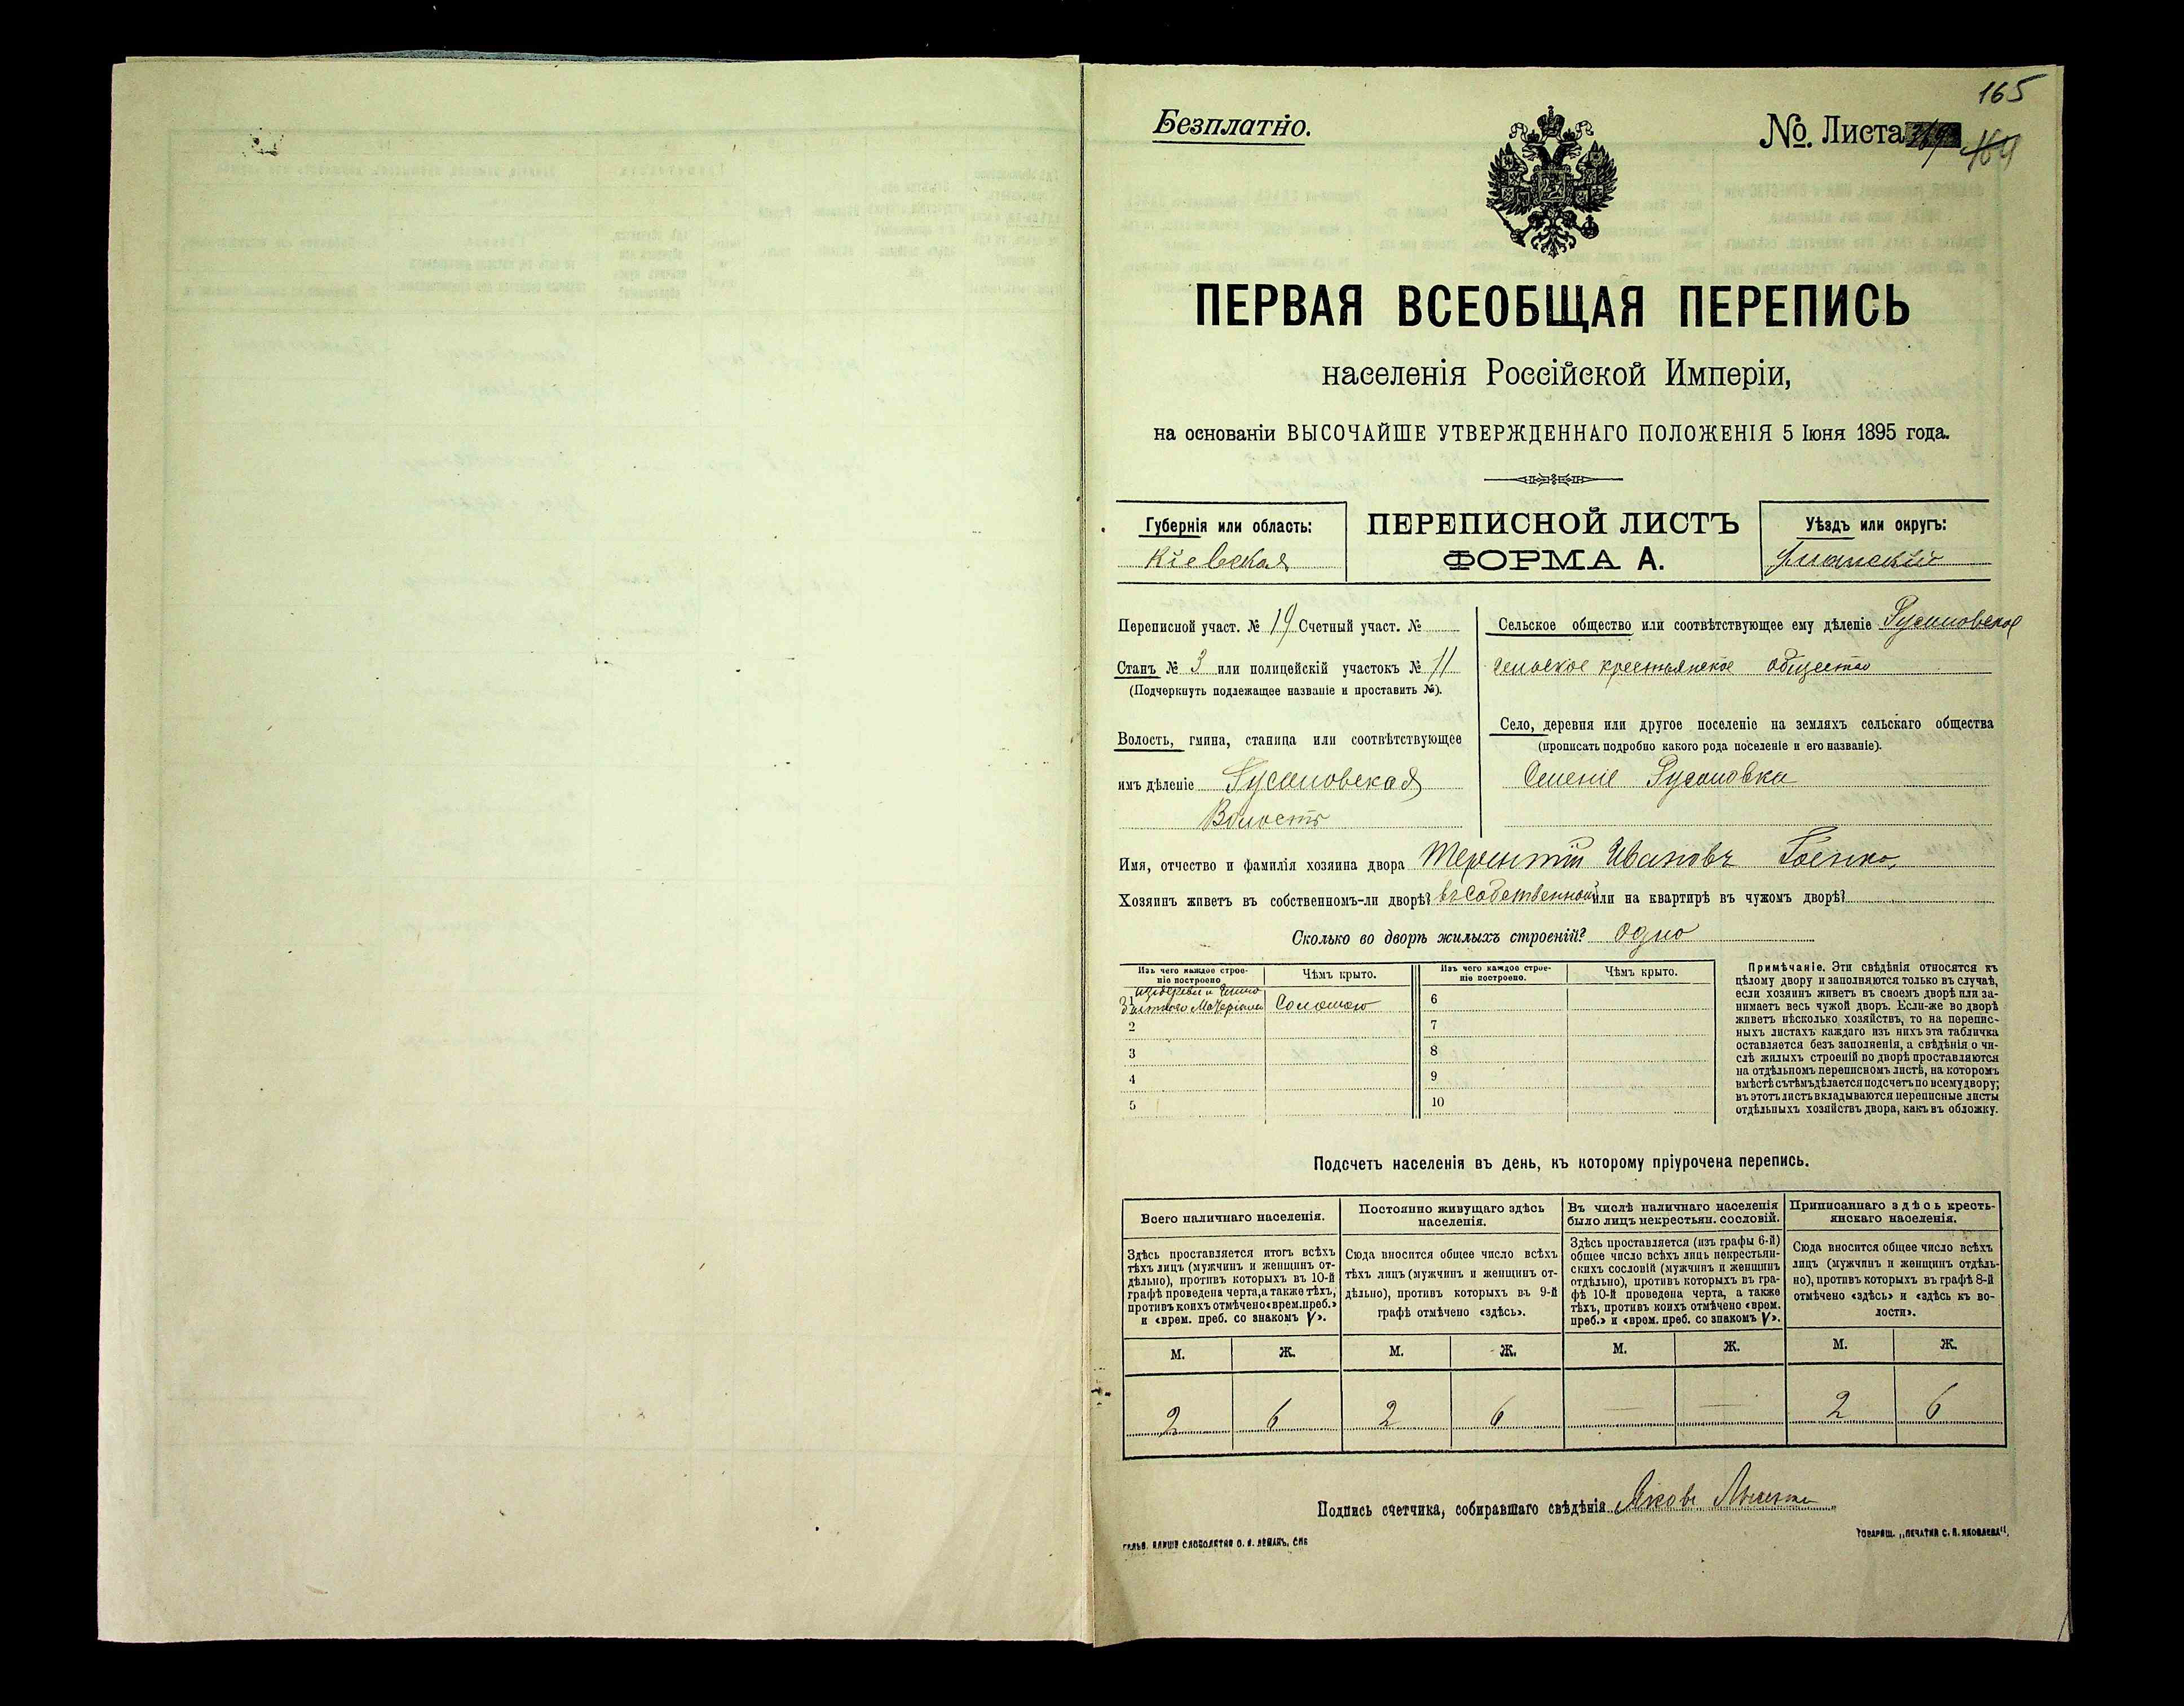 165
Безплатно.
№. Листа 369 164
ПЕРВАЯ ВСЕОБЩАЯ ПЕРЕПИСЬ
населенія Россійской Имперіи,
на основаніи ВЫСОЧАЙШЕ УТВЕРЖДЕННАГО ПОЛОЖЕНІЯ 5 Іюня 1895 года.
Губернія или область:
Кіевская
ПЕРЕПИСНОЙ ЛИСТЪ
ФОРМА А.
Уѣздъ или округъ:
Уманскій
Переписной участ. № 19 Счетный участ. №
Станъ № 3 или полицейскій участокъ № 11
(Подчеркнуть подлежащее названіе и проставить №).
Волость, гмина, станица или соотвѣтствующее
имъ дѣленіе
Волость
Сельское общество или соотвѣтствующее ему дѣленіе
сельское крестьянское общество
Село, деревня или другое поселеніе на земляхъ сельскаго общества
(прописать подробно какого рода поселеніе и его названіе).
Имя, отчество и фамилія хозяина двора Терентій Ивановъ
Хозяинъ живетъ въ собственномъ-ли дворѣ? въ собственномъ или на квартирѣ въ чужомъ дворѣ?
Сколько во дворѣ жилыхъ строеній? одно
Изъ чего каждое строеніе построено.
Чѣмъ крыто.
Изъ чего каждое строеніе построено.
Чѣмъ крыто.
1 Соломою
6
2
7
3
8
4
9
5
10
Примѣчаніе. Эти свѣдѣнія относятся къ
цѣлому двору и заполняются только въ случаѣ,
если хозяинъ живетъ въ своемъ дворѣ или за-
нимаетъ весь чужой дворъ. Если-же во дворѣ
живетъ нѣсколько хозяйствъ, то на перепис-
ныхъ листахъ каждаго изъ нихъ эта табличка
оставляется безъ заполненія, а свѣдѣнія о чи-
слѣ жилыхъ строеній во дворѣ проставляются
на отдѣльномъ переписномъ листѣ, на которомъ
вмѣстѣ съ тѣмъ дѣлается подсчетъ по всему двору;
въ этотъ листъ вкладываются переписные листы
отдѣльныхъ хозяйствъ двора, какъ въ обложку.
Подсчетъ населенія въ день, къ которому пріурочена перепись.
Всего наличнаго населенія.
Здѣсь проставляется итогъ всѣхъ
тѣхъ лицъ (мужчинъ и женщинъ от-
дѣльно), противъ которыхъ въ 10-й
графѣ проведена черта, а также тѣхъ,
противъ коихъ отмѣчено «врем. преб.»
и «врем. преб. со знакомъ V».
Постоянно живущаго здѣсь
населенія.
Сюда вносится общее число всѣхъ
тѣхъ лицъ (мужчинъ и женщинъ от-
дѣльно), противъ которыхъ въ 9-й
графѣ отмѣчено «здѣсь».
Въ числѣ наличнаго населенія
было лицъ некрестьян. сословій.
Здѣсь проставляется (изъ графы 6-й)
общее число всѣхъ лицъ некрестьян-
скихъ сословій (мужчинъ и женщинъ
отдѣльно), противъ которыхъ въ гра-
фѣ 10-й проведена черта, а также
тѣхъ, противъ коихъ отмѣчено «врем.
преб.» и «врем. преб. со знакомъ V».
Приписаннаго здѣсь кресть-
янскаго населенія.
Сюда вносится общее число всѣхъ
лицъ (мужчинъ и женщинъ отдѣль-
но), противъ которыхъ въ графѣ 8-й
отмѣчено «здѣсь» и «здѣсь къ во-
лости».
М. Ж. М. Ж. М. Ж. М. Ж.
2 6 2 6 — — 2 6
Подпись счетчика, собиравшаго свѣдѣнія Яковъ
ТОВАРИЩ. „ПЕЧАТНЯ С. П. ЯКОВЛЕВА".